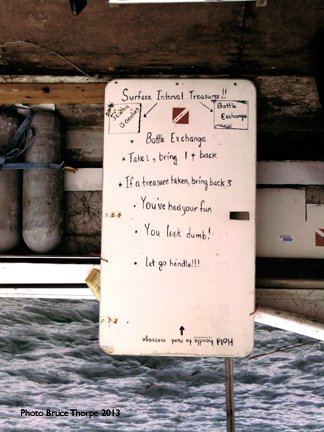 Surface Interval Treasures!!
Scuba Goodies
Bottle Exchange
• Bottle Exchange
• Take 1, bring 1+ back
• If a treasure taken, bring back 3
• You've had your fun
• You look dumb!
• let go handle!!!
Hold handle to read message
Photo Bruce Thorpe 2013